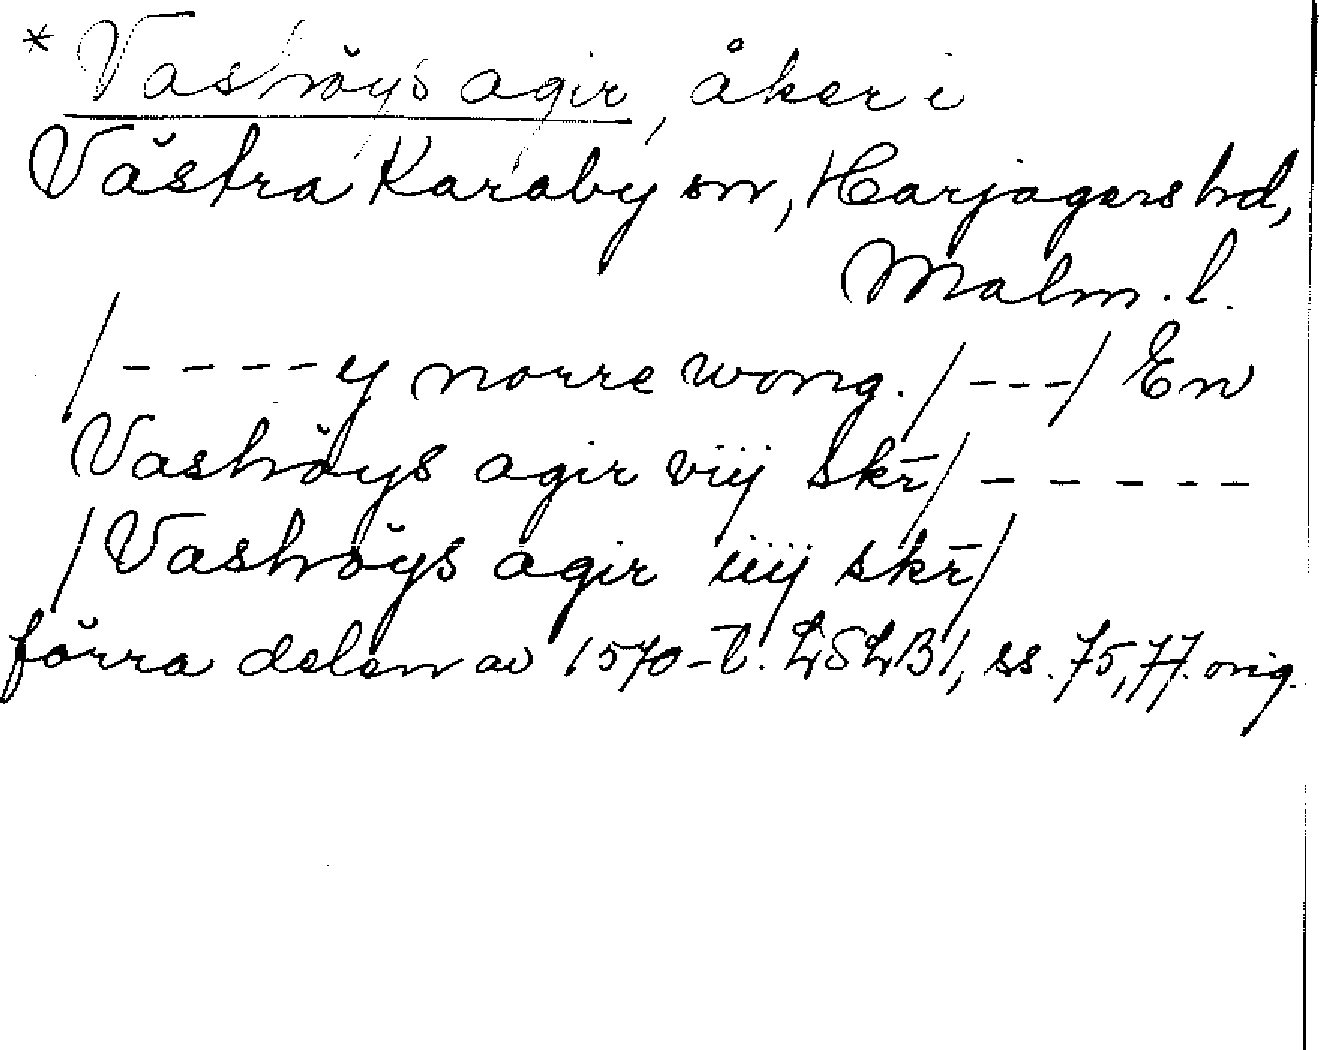 * Vashöys agir, åker i
Västra Karaby sn, Harjagers hd,
Malm. l.
/ - - - - y norre wong. / - - - / En
Vashöys agir viij skr̄ / - - - - -
/ Vashöys agir iiij skr̄ /
förra delen av 1570-t. LSLB1, ss. 75, 77. orig.